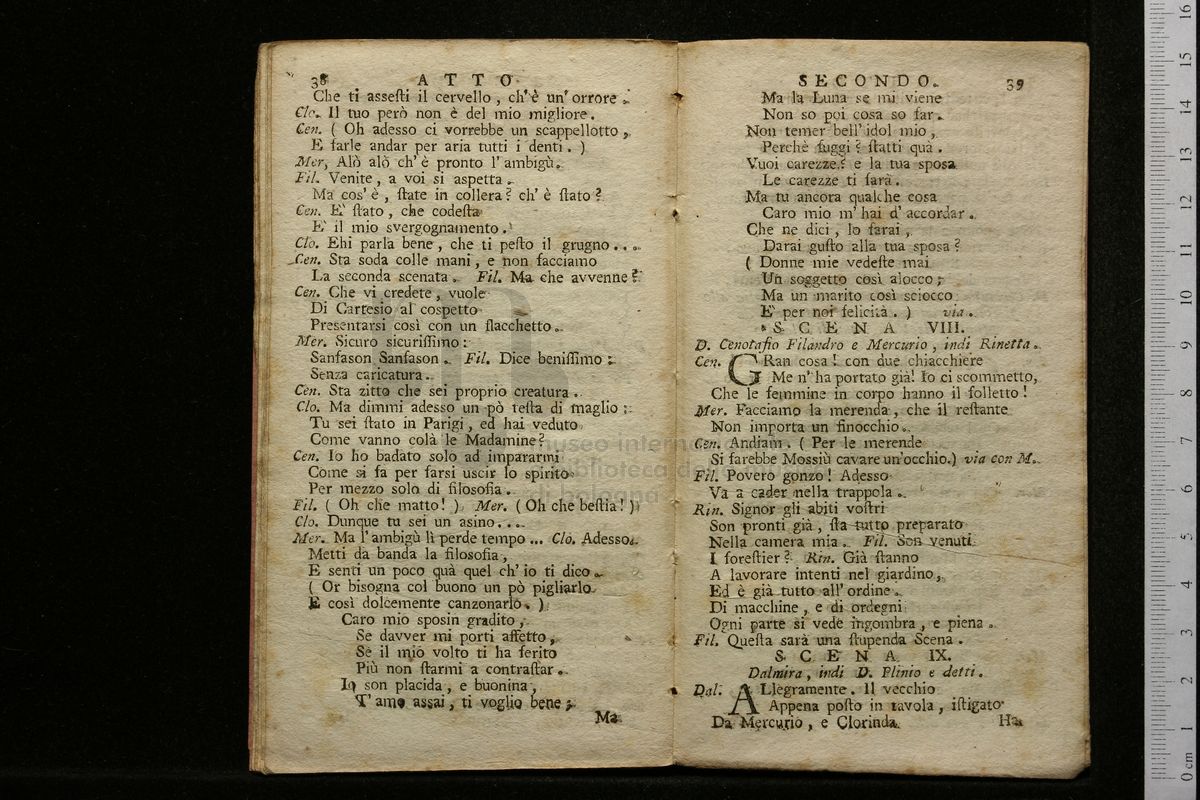 38 ATTO
Che ti assesti il cervello, ch'è un' orrore.
Clo. Il tuo però non è del mio migliore.
Cen. ( Oh adesso ci vorrebbe un scappellotto,
E farle andar per aria tutti i denti. )
Mer, Alò alò ch'è pronto l'ambigù.
Fil. Venite, a voi si aspetta.
Ma cos'è, state in collera? ch'è stato?
Cen. E' stato, che codesta
E' il mio svergognamento.
Clo. Ehi parla bene, che ti pesto il grugno...
Cen. Sta soda colle mani, e non facciamo
La seconda scenata. Fil. Ma che avvenne?
Cen. Che vi credete, vuole
Di Cartesio al cospetto
Presentarsi così con un slacchetto.
Mer. Sicuro sicurissimo:
Sanfason Sanfason. Fil. Dice benissimo:
Senza caricatura.
Cen. Sta zitto che sei proprio creatura.
Clo. Ma dimmi adesso un pò testa di maglio:
Tu sei stato in Parigi, ed hai veduto
Come vanno colà le Madamine?
Cen. Io ho badato solo ad impararmi
Come si fa per farsi uscir lo spirito
Per mezzo solo di filosofia.
Fil. ( Oh che matto! ) Mer. ( Oh che bestia! )
Clo. Dunque tu sei un asino....
Mer. Ma l'ambigù lì perde tempo... Clo. Adesso.
Metti da banda la filosofia,
E senti un poco quà quel ch'io ti dico.
( Or bisogna col buono un pò pigliarlo
E così dolcemente canzonarlo. )
Caro mio sposin gradito,
Se davver mi porti affetto,
Se il mio volto ti ha ferito
Più non starmi a contrastar.
Io son placida, e buonina,
T'amo assai, ti voglio bene;
Ma
SECONDO. 39
Ma la Luna se mi viene
Non so poi cosa so far.
Non temer bell'idol mio,
Perchè fuggi? statti quà.
Vuoi carezze? e la tua sposa
Le carezze ti farà.
Ma tu ancora qualche cosa
Caro mio m'hai d'accordar.
Che ne dici, lo farai,
Darai gusto alla tua sposa?
( Donne mie vedeste mai
Un soggetto così alocco;
Ma un marito così sciocco
E' per noi felicità. ) via.
SCENA VIII.
D. Cenotafio Filandro e Mercurio, indi Rinetta.
Cen. GRan cosa! con due chiacchiere
Me n'ha portato già! Io ci scommetto,
Che le femmine in corpo hanno il folletto!
Mer. Facciamo la merenda, che il restante
Non importa un finocchio.
Cen. Andiam. ( Per le merende
Si farebbe Mossiù cavare un'occhio.) via con M.
Fil. Povero gonzo! Adesso
Va a cader nella trappola.
Rin. Signor gli abiti vostri
Son pronti già, sta tutto preparato
Nella camera mia. Fil. Son venuti
I forestier? Rin. Già stanno
A lavorare intenti nel giardino,
Ed è già tutto all'ordine.
Di macchine, e di ordegni
Ogni parte si vede ingombra, e piena.
Fil. Questa sarà una stupenda Scena.
SCENA IX.
Dalmira, indi D. Plinio e detti.
Dal. ALlegramente. Il vecchio
Appena posto in tavola, istigato
Da Mercurio, e Clorinda
Ha